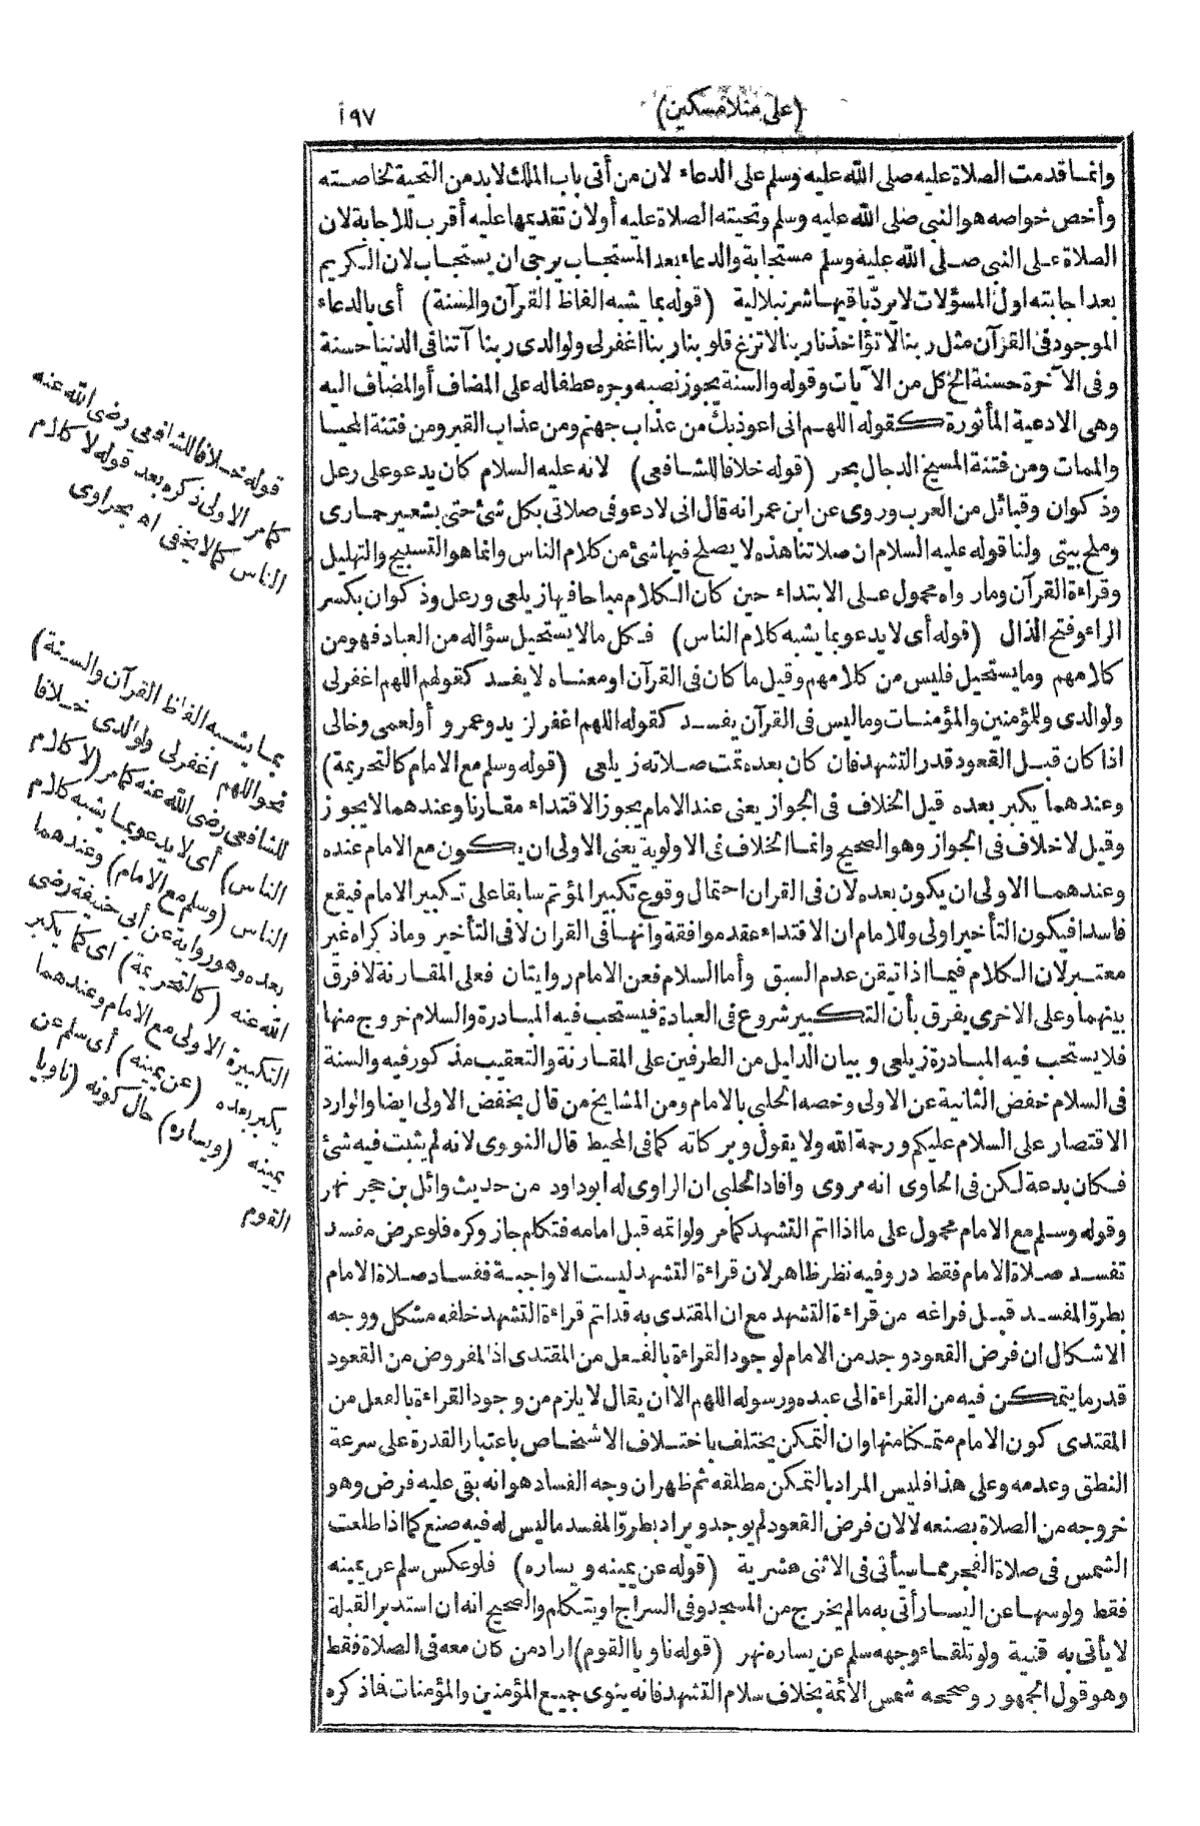 (على منلا مسكين)
١٩٧
وانما قدمت الصلاة عليه صلى الله عليه وسلم على الدعاء لان من أتى باب الملك لابد من التحية لخاصته
وأخص خواصه هو النبي صلى الله عليه وسلم وتحيته الصلاة عليه أولان تقديمها عليه أقرب للاجابة لان
الصلاة على النبي صلى الله عليه وسلم مستجابة والدعاء بعد المستجاب يرجى ان يستجاب لان الكريم
بعد اجابته اول المسؤلات لا يردّ باقيها شرنبلالية (قوله بما يشبه الفاظ القرآن والسنة) أى بالدعاء
الموجود فى القرآن مثل ربنا لا تؤاخذنا ربنا لا تزغ قلوبنا ربنا اغفر لى ولوالدى ربنا آتنا فى الدنيا حسنة
وفى الآخرة حسنة الخ كل من الآيات وقوله والسنة يجوز نصبه وجره عطفا له على المضاف أو المضاف اليه
وهى الادعية المأثورة كقوله اللهم انى اعوذ بك من عذاب جهنم ومن عذاب القبر ومن فتنة المحيا
والممات ومن فتنة المسيح الدجال بحر (قوله خلافا للشافعى) لانه عليه السلام كان يدعو على رعل
وذكوان وقبائل من العرب وروى عن ابن عمر انه قال انى لادعو فى صلاتى بكل شئ حتى بشعير حمارى
وملح بيتى ولنا قوله عليه السلام ان صلاتنا هذه لا يصلح فيها شئ من كلام الناس وانما هو التسبيح والتهليل
وقراءة القرآن ومارواه محمول على الابتداء حين كان الكلام مباحا فيها زيلعى ورعل وذكوان بكسر
الراء وفتح الذال (قوله أى لا يدعو بما يشبه كلام الناس) فكل مالا يستحيل سؤاله من العباد فهو من
كلامهم وما يستحيل فليس من كلامهم وقيل ما كان فى القرآن او معناه لا يفسد كقولهم اللهم اغفر لى
ولوالدى وللمؤمنين والمؤمنات وما ليس فى القرآن يفسد كقوله اللهم اغفر لزيد وعمرو أو لعمى وخالى
اذا كان قبل القعود قدر التشهد فان كان بعده تمت صلاته زيلعى (قوله وسلم مع الامام كالتحريمة)
وعندهما يكبر بعده قيل الخلاف فى الجواز يعنى عند الامام يجوز الاقتداء مقارنا وعندهما لا يجوز
وقيل لا خلاف فى الجواز وهو الصحيح وانما الخلاف فى الاولوية يعنى الاولى ان يكون مع الامام عنده
وعندهما الاولى ان يكون بعده لان فى القران احتمال وقوع تكبير المؤتم سابقا على تكبير الامام فيقع
فاسدا فيكون التأخير اولى وللامام ان الاقتداء عقد موافقة وانها فى القران لا فى التأخير وماذكراه غير
معتبر لان الكلام فيما اذا تيقن عدم السبق وأما السلام فعن الامام روايتان فعلى المقارنة لا فرق
بينهما وعلى الاخرى يفرق بأن التكبير شروع فى العبادة فيستحب فيه المبادرة والسلام خروج منها
فلا يستحب فيه المبادرة زيلعى وبيان الدليل من الطرفين على المقارنة والتعقيب مذكور فيه والسنة
فى السلام خفض الثانية عن الاولى وخصه الحلبى بالامام ومن المشايخ من قال بخفض الاولى ايضا والوارد
الاقتصار على السلام عليكم ورحمة الله ولا يقول وبركاته كما فى المحيط قال النووى لانه لم يثبت فيه شئ
فكان بدعة لكن فى الحاوى انه مروى وافاد الحلبى ان الراوى له ابو داود من حديث وائل بن حجر نهر
وقوله وسلم مع الامام محمول على ما اذا اتم التشهد كما مر ولو اتمه قبل امامه فتكلم جاز وكره فلو عرض مفسد
تفسد صلاة الامام فقط در وفيه نظر ظاهر لان قراءة التشهد ليست الا واجبة ففساد صلاة الامام
بطروّ المفسد قبل فراغه من قراءة التشهد مع ان المقتدى به قد اتم قراءة التشهد خلفه مشكل ووجه
الاشكال ان فرض القعود وجد من الامام لوجود القراءة بالفعل من المقتدى اذ المفروض من القعود
قدر ما يتمكن فيه من القراءة الى عبده ورسوله اللهم الا ان يقال لا يلزم من وجود القراءة بالفعل من
المقتدى كون الامام متمكنا منها وان التمكن يختلف باختلاف الاشخاص باعتبار القدرة على سرعة
النطق وعدمه وعلى هذا فليس المراد بالتمكن مطلقه ثم ظهر ان وجه الفساد هو انه بقى عليه فرض وهو
خروجه من الصلاة بصنعه لا لان فرض القعود لم يوجد ويراد بطروّ المفسد ما ليس له فيه صنع كما اذا طلعت
الشمس فى صلاة الفجر مما سيأتى فى الاثنى عشرية (قوله عن يمينه ويساره) فلو عكس سلم عن يمينه
فقط ولو سها عن اليسار أتى به مالم يخرج من المسجد وفى السراج او يتكلم والصحيح انه ان استدبر القبلة
لا يأتى به قنية ولو تلقاء وجهه سلم عن يساره نهر (قوله ناويا القوم) اراد من كان معه فى الصلاة فقط
وهو قول الجمهور وصححه شمس الائمة بخلاف سلام التشهد فانه ينوى جميع المؤمنين والمؤمنات فاذكره
قوله خلافا للشافعى رضى الله عنه
كما مر الاولى ذكره بعد قوله لا كلام
الناس كما لا يخفى اه بحراوى
بما يشبه الفاظ القرآن والسنة)
نحو اللهم اغفر لى ولوالدى خلافا
للشافعى رضى الله عنه كما مر (لا كلام
الناس) أى لا يدعو بما يشبه كلام
الناس (وسلم مع الامام) وعندهما
بعده وهو رواية عن أبى حنيفة رضى
الله عنه (كالتحريمة) اى كما يكبر
التكبيرة الاولى مع الامام وعندهما
يكبر بعده (عن يمينه) أى سلم عن
يمينه (ويساره) حال كونه (ناويا
القوم